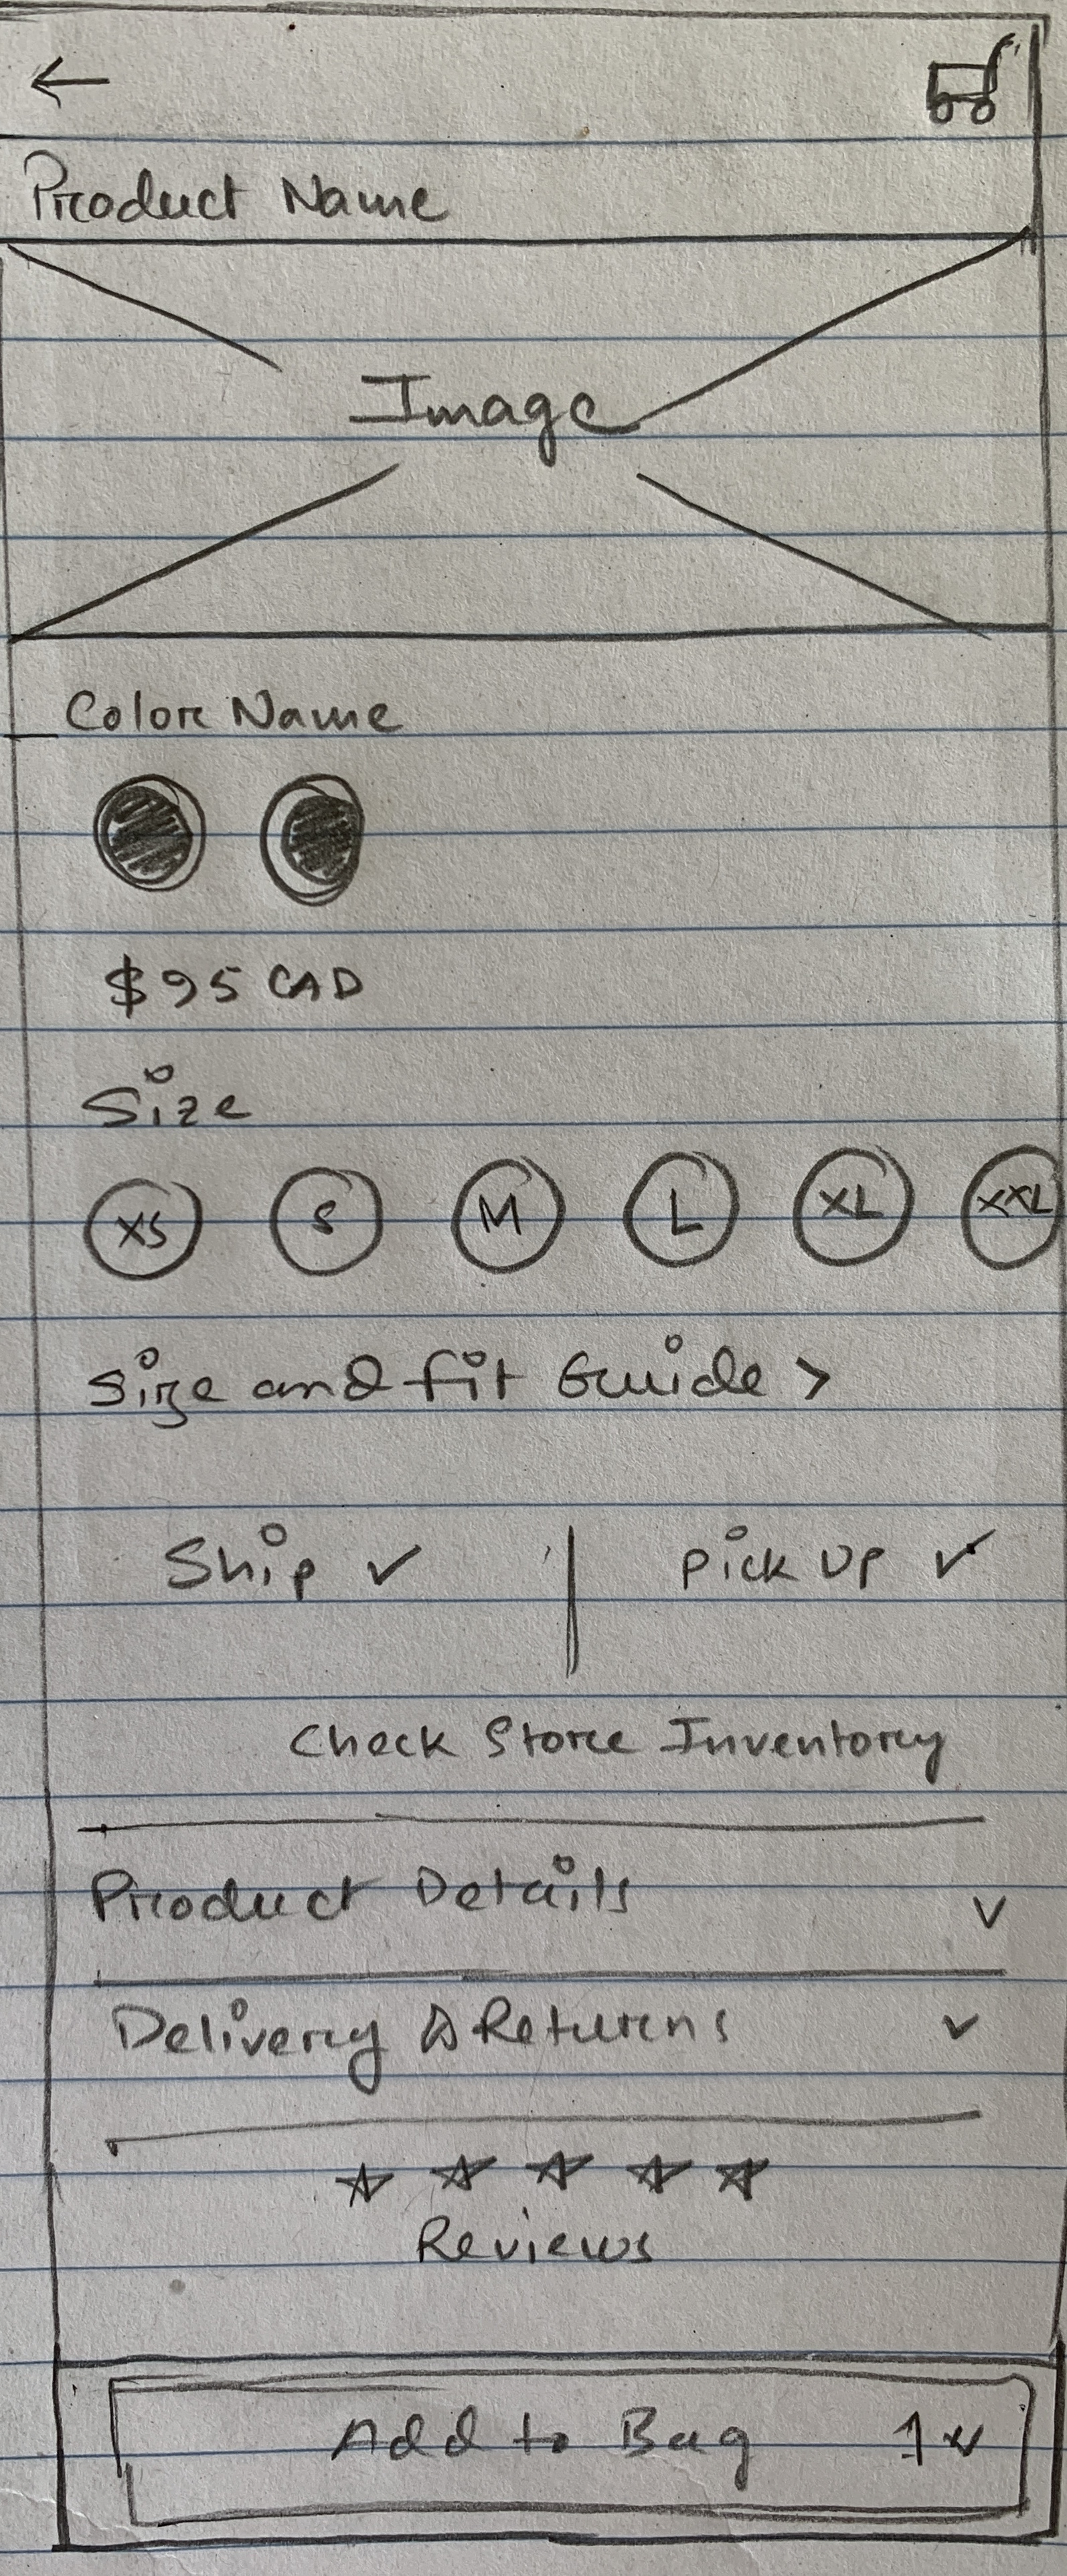 ←
Product Name
Image
Color Name
$95 CAD
Size
XS S M L XL XXL
Size and fit Guide >
Ship ✓ | Pick Up ✓
Check Store Inventory
Product Details ∨
Delivery & Returns ∨
☆ ☆ ☆ ☆ ☆
Reviews
Add to Bag 1 ∨